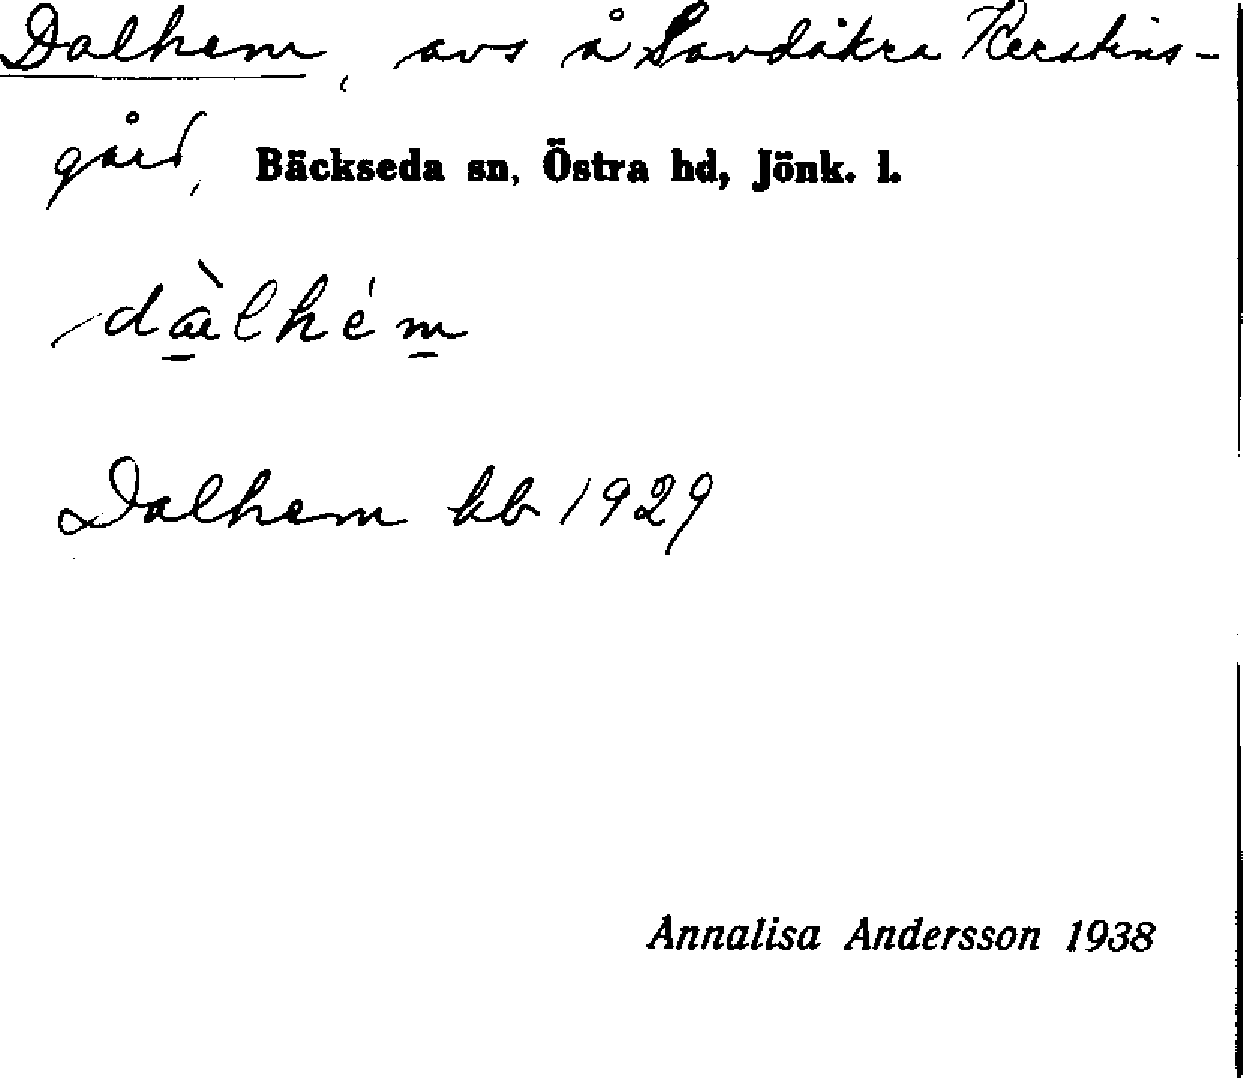 Dalhem, avs å Sandåkra Kerstins-
gård, Bäckseda sn, Östra hd, Jönk. l.
dàlhém
Dalhem kb 1929
Annalisa Andersson 1938